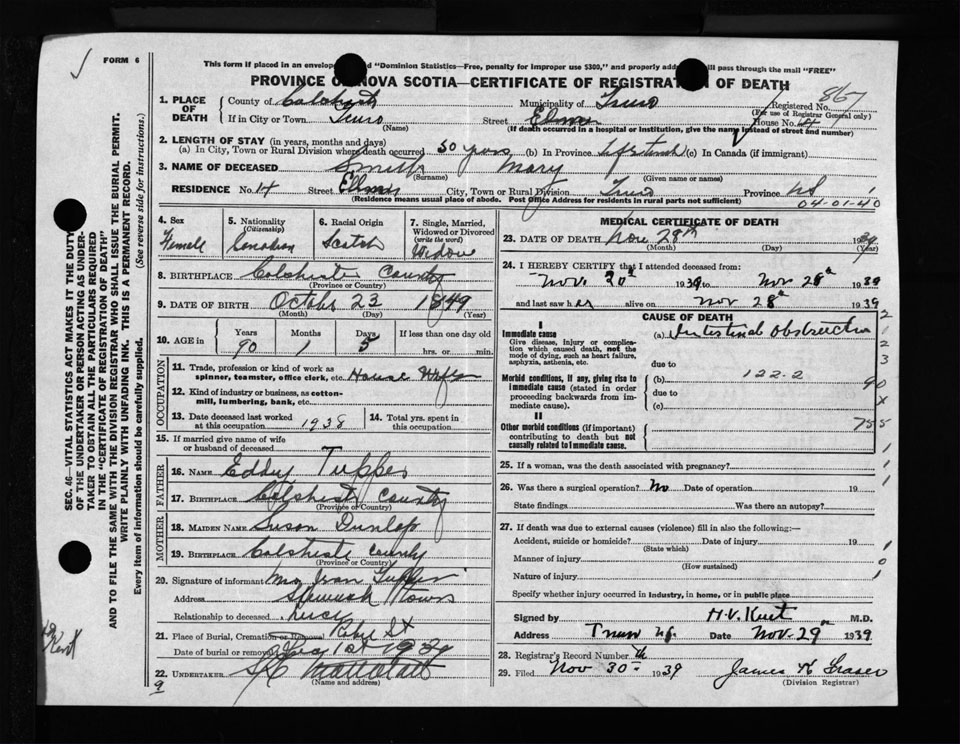 FORM 6
This form if placed in an envelope "Dominion Statistics—Free, penalty for improper use $300," and properly will pass through the mail "FREE"
PROVINCE OF NOVA SCOTIA—CERTIFICATE OF REGISTRATION OF DEATH
SEC. 46—VITAL STATISTICS ACT MAKES IT THE DUTY
OF THE UNDERTAKER OR PERSON ACTING AS UNDER-
TAKER TO OBTAIN ALL THE PARTICULARS REQUIRED
IN THE "CERTIFICATE OF REGISTRATION OF DEATH"
AND TO FILE THE SAME WITH THE DIVISION REGISTRAR WHO SHALL ISSUE THE BURIAL PERMIT.
WRITE PLAINLY WITH UNFADING INK. THIS IS A PERMANENT RECORD.
Every item of information should be carefully supplied. (See reverse side for instructions.)
1. PLACE OF DEATH
County of Colchester Municipality of Truro Registered No. 867
(For use of Registrar General only)
If in City or Town Truro (Name) Street Elm House No. 14
(If death occurred in a hospital or institution, give the name instead of street and number)
2. LENGTH OF STAY (in years, months and days)
(a) In City, Town or Rural Division where death occurred 50 years (b) In Province Lifetime (c) In Canada (if immigrant)
3. NAME OF DECEASED Smith Mary
(Surname) (Given name or names)
RESIDENCE No. 14 Street Elm City, Town or Rural Division Truro Province NS
(Residence means usual place of abode. Post Office Address for residents in rural parts not sufficient)
04-01-40
4. Sex Female
5. Nationality (Citizenship) Canadian
6. Racial Origin Scotch
7. Single, Married, Widowed or Divorced (write the word) Widow
8. BIRTHPLACE Colchester County
(Province or Country)
9. DATE OF BIRTH October 23 1849
(Month) (Day) (Year)
10. AGE in Years 90 Months 1 Days 5 If less than one day old hrs. or min.
OCCUPATION
11. Trade, profession or kind of work as spinner, teamster, office clerk, etc. House Wife
12. Kind of industry or business, as cotton-mill, lumbering, bank, etc.
13. Date deceased last worked at this occupation 1938
14. Total yrs. spent in this occupation
15. If married give name of wife or husband of deceased
FATHER
16. NAME Eddy Tupper
17. BIRTHPLACE Colchester County
(Province or Country)
MOTHER
18. MAIDEN NAME Susan Dunlap
19. BIRTHPLACE Colchester County
(Province or Country)
20. Signature of informant Mrs Tupper
Address
Relationship to deceased
21. Place of Burial, Cremation or Removal Robie St
Date of burial or removal 1st 1939
22. UNDERTAKER
(Name and address)
9
MEDICAL CERTIFICATE OF DEATH
23. DATE OF DEATH Nov 28th 1939
(Month) (Day) (Year)
24. I HEREBY CERTIFY that I attended deceased from:
Nov. 20th 1939 to Nov 28th 1939
and last saw her alive on Nov 28th 1939
CAUSE OF DEATH
I
Immediate cause
Give disease, injury or complication which caused death, not the mode of dying, such as heart failure, asphyxia, asthenia, etc.
(a) Intestinal Obstruction
due to
Morbid conditions, if any, giving rise to immediate cause (stated in order proceeding backwards from immediate cause).
(b) 122-2
due to
(c)
II
Other morbid conditions (if important) contributing to death but not causally related to immediate cause.
90
755
25. If a woman, was the death associated with pregnancy?
26. Was there a surgical operation? No Date of operation 19
State findings Was there an autopsy?
27. If death was due to external causes (violence) fill in also the following:—
Accident, suicide or homicide? Date of injury 19
(State which)
Manner of injury
(How sustained)
Nature of injury
Specify whether injury occurred in industry, in home, or in public place
Signed by H.V. Kent M.D.
Address Truro N.S. Date Nov. 29th 1939
28. Registrar's Record Number
29. Filed Nov 30- 1939 James K Fraser
(Division Registrar)